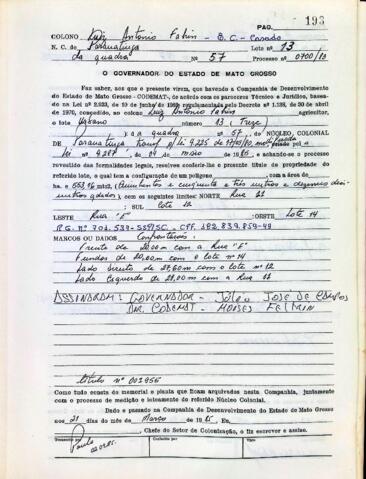 PAG. 193
COLONO Luiz Antonio Fabin - B.C. - Casado
N. C. de Paranatinga Lote nº 13
da quadra Nº 57 Processo nº 0700/80
O GOVERNADOR DO ESTADO DE MATO GROSSO
Faz saber, aos que o presente virem, que havendo a Companhia de Desenvolvimento
do Estado de Mato Grosso - CODEMAT, de acordo com os pareceres Técnico e Jurídico, baseado
na Lei n.º 2.933, de 10 de junho de 1969 regulamentada pelo Decreto n.º 1.138, de 30 de abril
de 1970, concedido, ao colono Luiz Antonio Fabin agricultor,
o lote Urbano 13 (Treze)
da quadra nº 57, NÚCLEO, COLONIAL
DE Paranatinga
Lei nº 4.287 de 04 de maio de 1985, e achando-se o processo
revestido das formalidades legais, resolve conferir-lhe o presente título de propriedade do
referido lote, o qual tem a configuração de um polígono com a área de
ha. e 553,16 mts2, (Quinhentos e cinquenta e três metros e dezesseis deci
metros quadrados), com os seguintes limites: NORTE Rua 11
; SUL Lote 12
LESTE Rua "E" ; OESTE Lote 14
MARCOS OU DADOS Confrontações:
Frente de 20,00 m com a Rua "E"
Fundos de 20,00 m com o lote nº 14
Lado direito de 27,60 m com o lote nº 12
Lado Esquerdo de 28,00 m com a Rua 11
ASSINARAM: GOVERNADOR - JÚLIO JOSÉ DE CAMPOS
DIR. CODEMAT - MOISES FELMIN
título nº 001956
Como tudo consta do memorial e planta que ficam arquivados nesta Companhia, juntamente
com o processo de medição e loteamento do referido Núcleo Colonial.
Dado e passado na Companhia de Desenvolvimento do Estado de Mato Grosso
aos 21 dias do mês de Março de 1985. Eu,
, Chefe do Setor de Colonização, o fiz escrever e assino.
Conferido por
Visto
Paulo